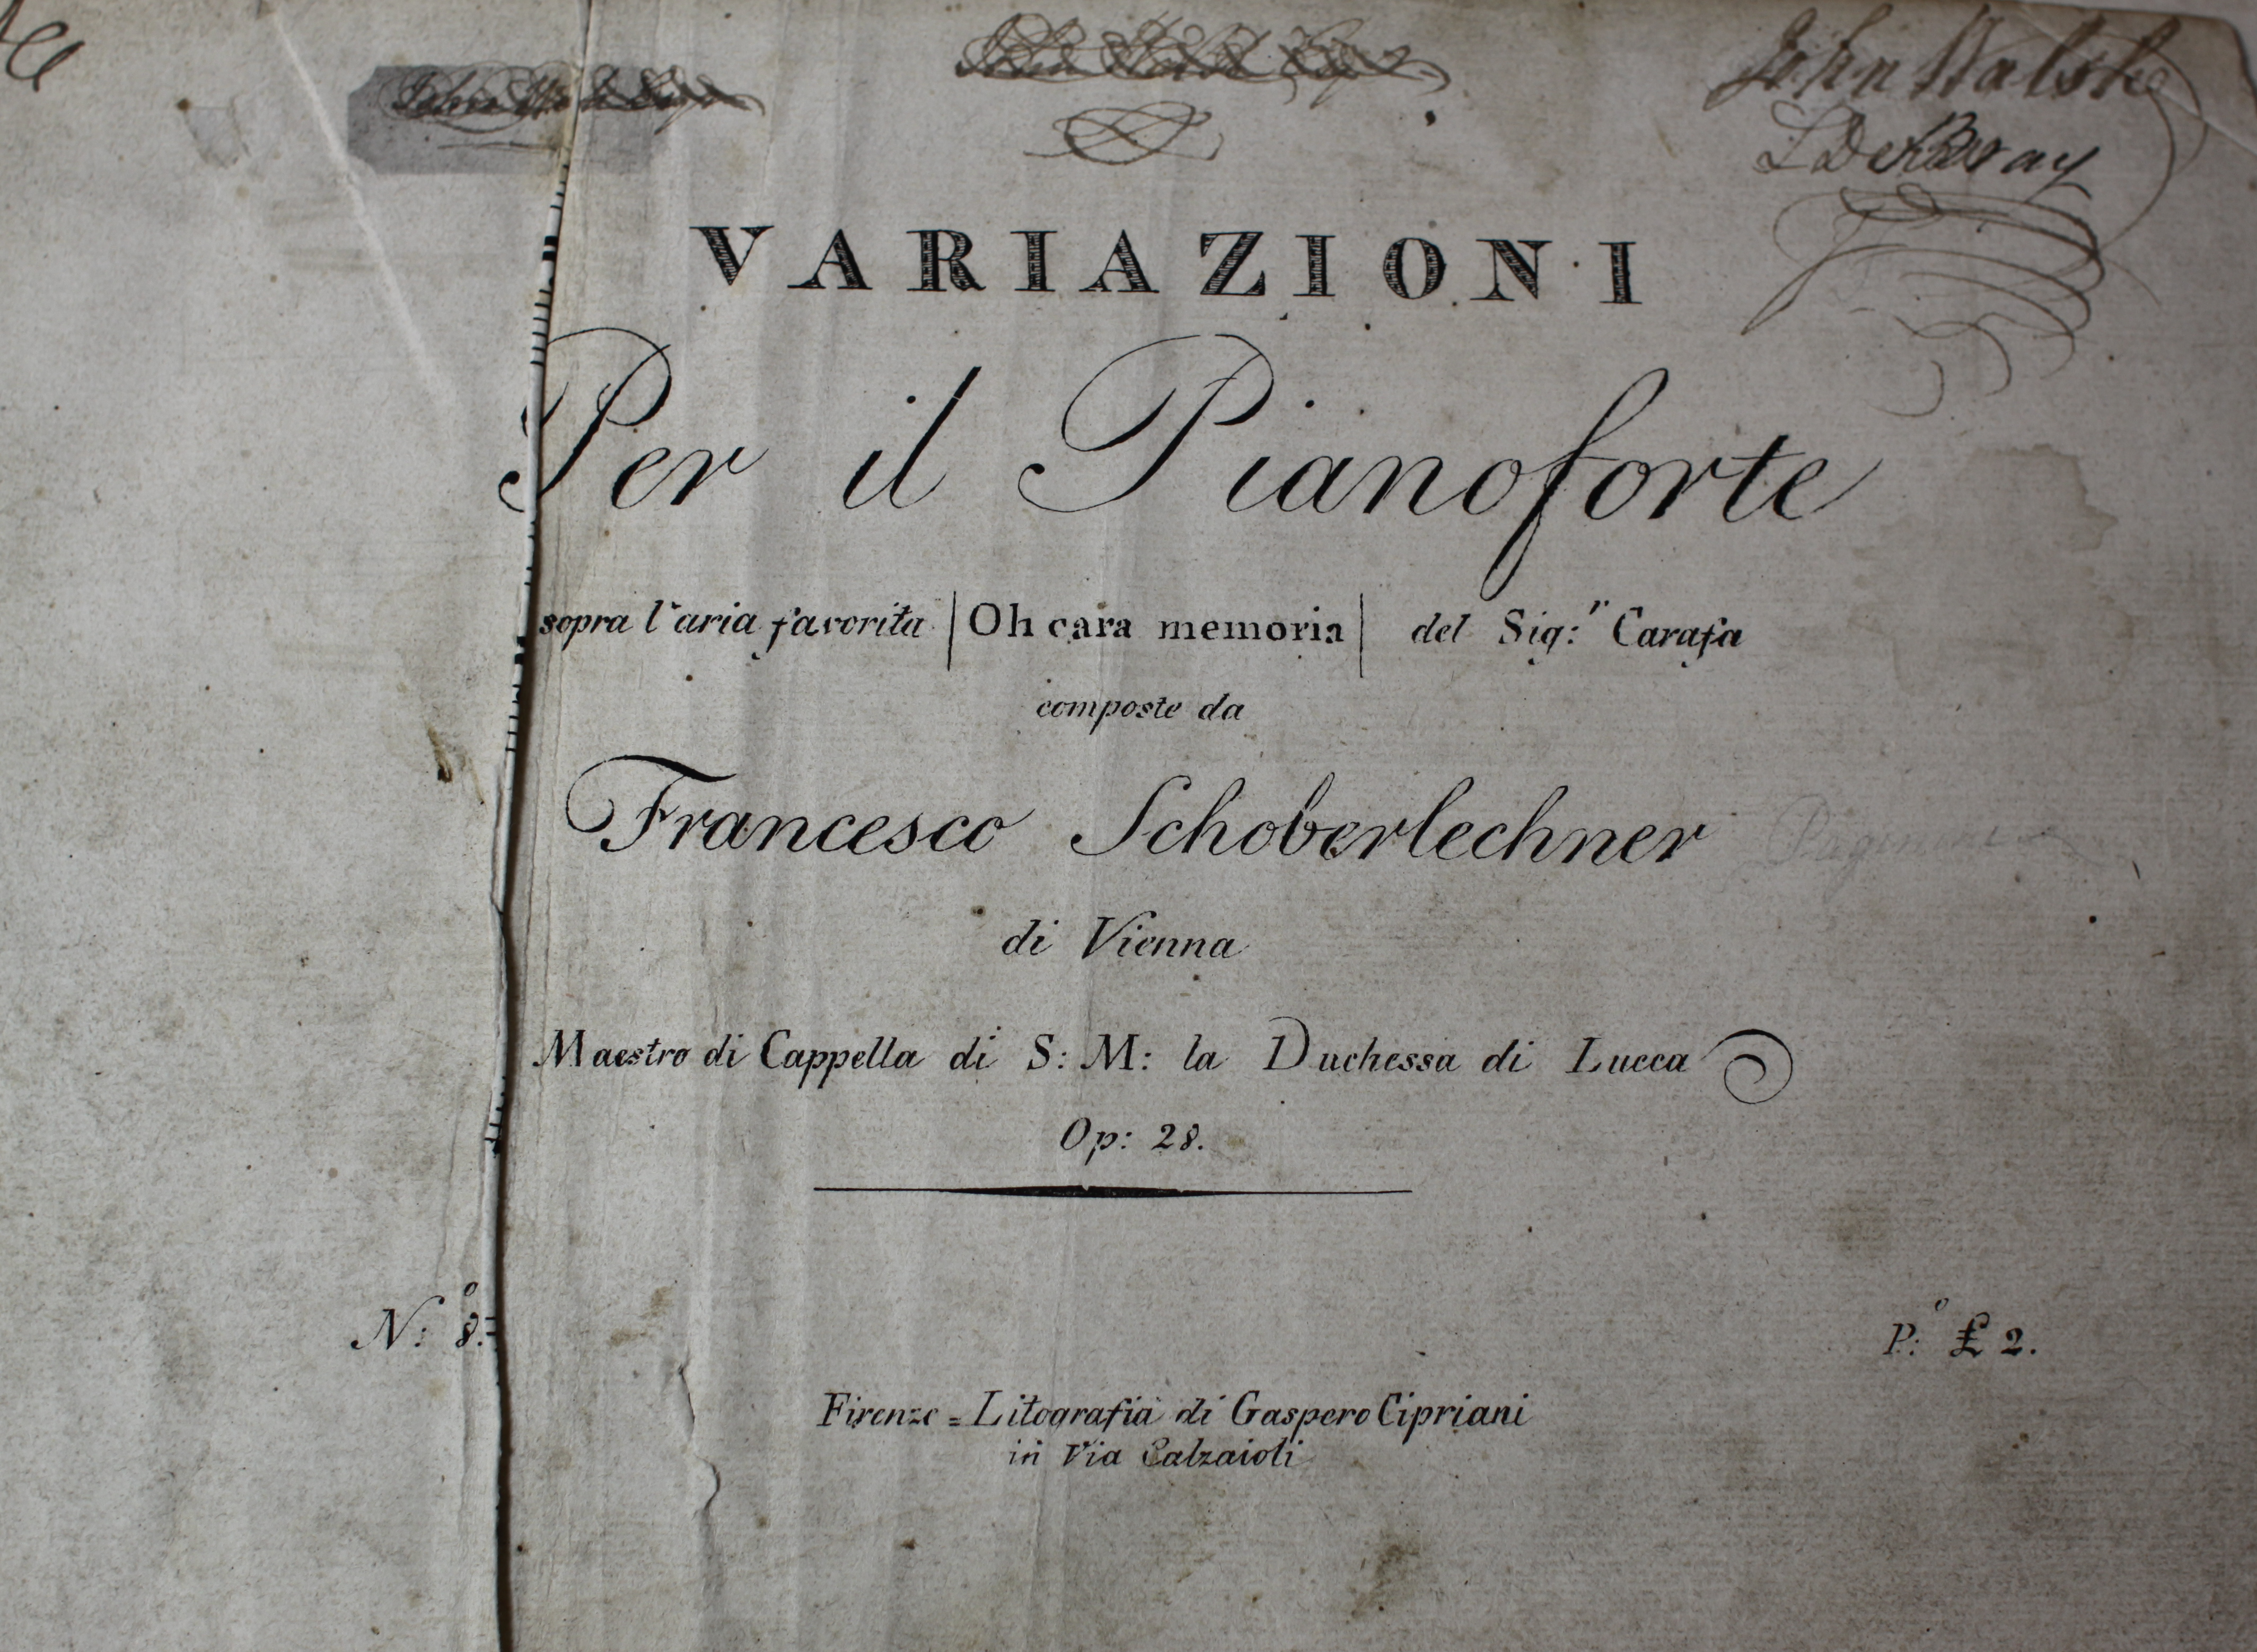 John Walsh
VARIAZIONI
Per il Pianoforte
sopra l'aria favorita | Oh cara memoria | del Sig:r Carafa
composte da
Francesco Schoberlechner
di Vienna
Maestro di Cappella di S: M: la Duchessa di Lucca
Op: 28.
N:o 8.
P:o £ 2.
Firenze = Litografia di Gaspero Cipriani
in Via Calzaioli